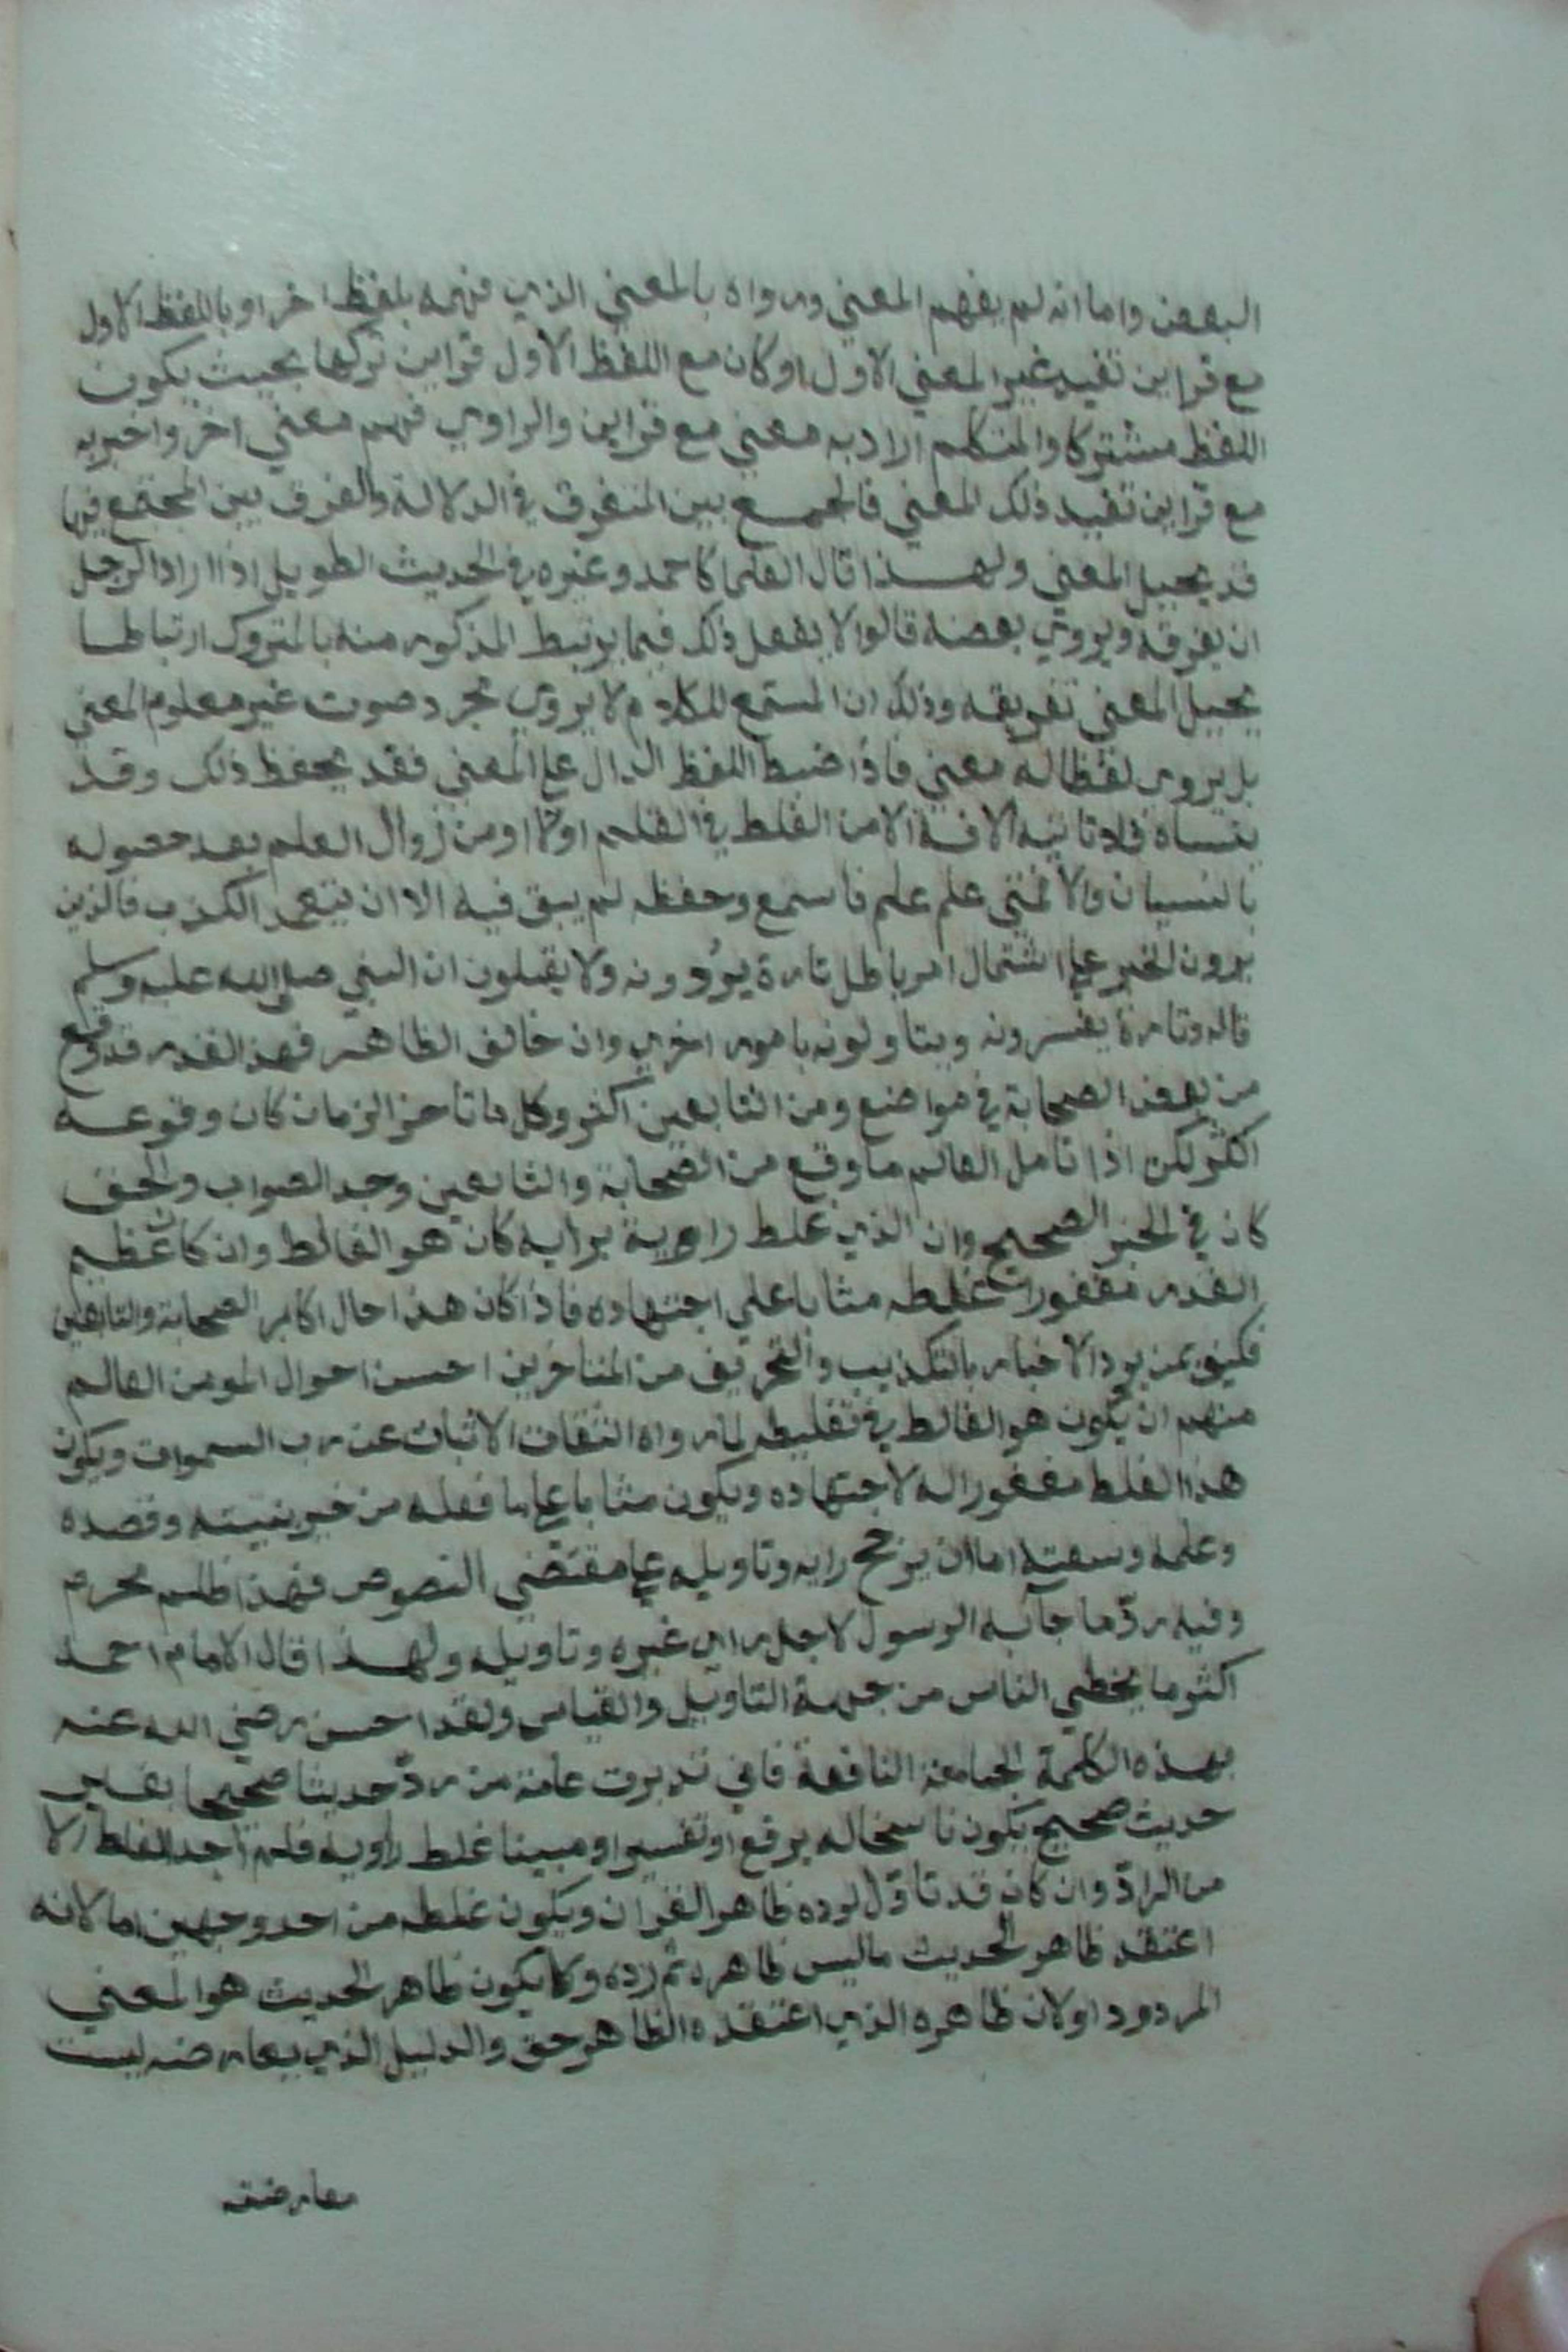 البعض واما انه لم يفهم المعني ورواه بالمعني الذي فهمه بلفظ اخر او باللفظ الاول
مع قراين تفيد غير المعني الاول او كان مع اللفظ الاول قراين تركها بحيث يكون
اللفظ مشتركا والمتكلم اراد به معني مع قراين والراوي فهم معني اخر واخبر به
مع قراين تفيد ذلك المعني فالجمع بين المتفرق في الدلالة والفرق بين المجتمع فيها
قد يحيل المعني ولهذا قال العلما كاحمد وغيره في الحديث الطويل اذا اراد الرجل
ان يفرقه ويروي بعضه قالوا لا يفعل ذلك فيما يرتبط المذكور منه بالمتروك ارتباطا
يحيل المعني تفريقه وذلك ان المستمع للكلام لا يروي مجرد صوت غير معلوم المعني
بل يروي لفظا له معني فاذا ضبط اللفظ الدال علي المعني فقد يحفظ ذلك وقد
ينساه فلا تاتيه الافة الا من الغلط في الفهم اولا او من زوال العلم بعد حصوله
بالنسيان والا فمتي علم علم ما سمع وحفظه لم يبق فيه الا ان يتعمد الكذب فالذين
يرون الخبر علي اشتمال امر باطل تارة يردونه ولا يقبلون ان النبي صلي الله عليه وسلم
قاله وتارة يفسرونه ويتاولونه بامور اخري وان خالف الظاهر فهذا القدر قد وقع
من بعض الصحابة في مواضع ومن التابعين اكثر وكل ما تاخر الزمان كان وقوعه
اكثر لكن اذا تامل العالم ما وقع من الصحابة والتابعين وجد الصواب والحق
كان في الخبر الصحيح وان الذي غلط راويه برايه كان هو الغالط وان كان عظيم
القدر مغفورا غلطه مثابا علي اجتهاده فاذا كان هذا حال اكابر الصحابة والتابعين
فكيف بمن يرد الاخبار بالتكذيب والتحريف من المتاخرين احسن احوال المومن العالم
منهم ان يكون هو الغالط في تغليطه لما رواه الثقات الاثبات عن رب السموات ويكون
هذا الغلط مغفورا له لاجتهاده ويكون مثابا علي ما فعله من خير بنيته وقصده
وعلمه وسعيه اما ان يرجح رايه وتاويله علي مقتضي النصوص فهذا ظلم محرم
وفيه ردّ ما جآ به الرسول لاجل راي غيره وتاويله ولهذا قال الامام احمد
اكثر ما يخطي الناس من جهة التاويل والقياس ولقد احسن رضي الله عنه
بهذه الكلمة الجامعة النافعة فاني تدبرت عامة من ردّ حديثا صحيحا بغير
حديث صحيح يكون ناسخا له برفع او تفسير او مبينا غلط راويه فلم اجد الغلط الا
من الرادّ وان كان قد تاوّل لرده ظاهر القران ويكون غلطه من احد وجهين اما لانه
اعتقد ظاهر الحديث ما ليس ظاهره ثم رده ولا يكون ظاهر الحديث هو المعني
المردود او لان ظاهره الذي اعتقده الظاهر حق والدليل الذي يعارضه ليست
معارضته